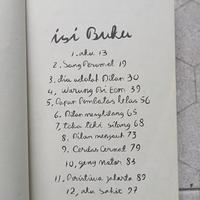 isi Buku
1. aku 13
2. Sang Peramal 19
3. dia adalah Dilan 30
4. Warung Bi Eem 39
5. Papan Pembatas kelas 56
6. Dilan menghilang 65
7. teka teki silang 68
8. Dilan menjauh 73
9. Cerdas Cermat 79
10. geng motor 83
11. Peristiwa jakarta 89
12. aku Sakit 97